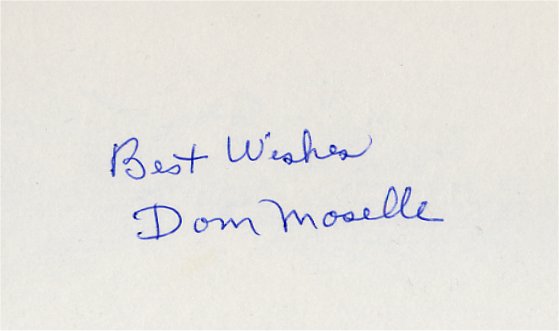 Best Wishes
Dom Moselle